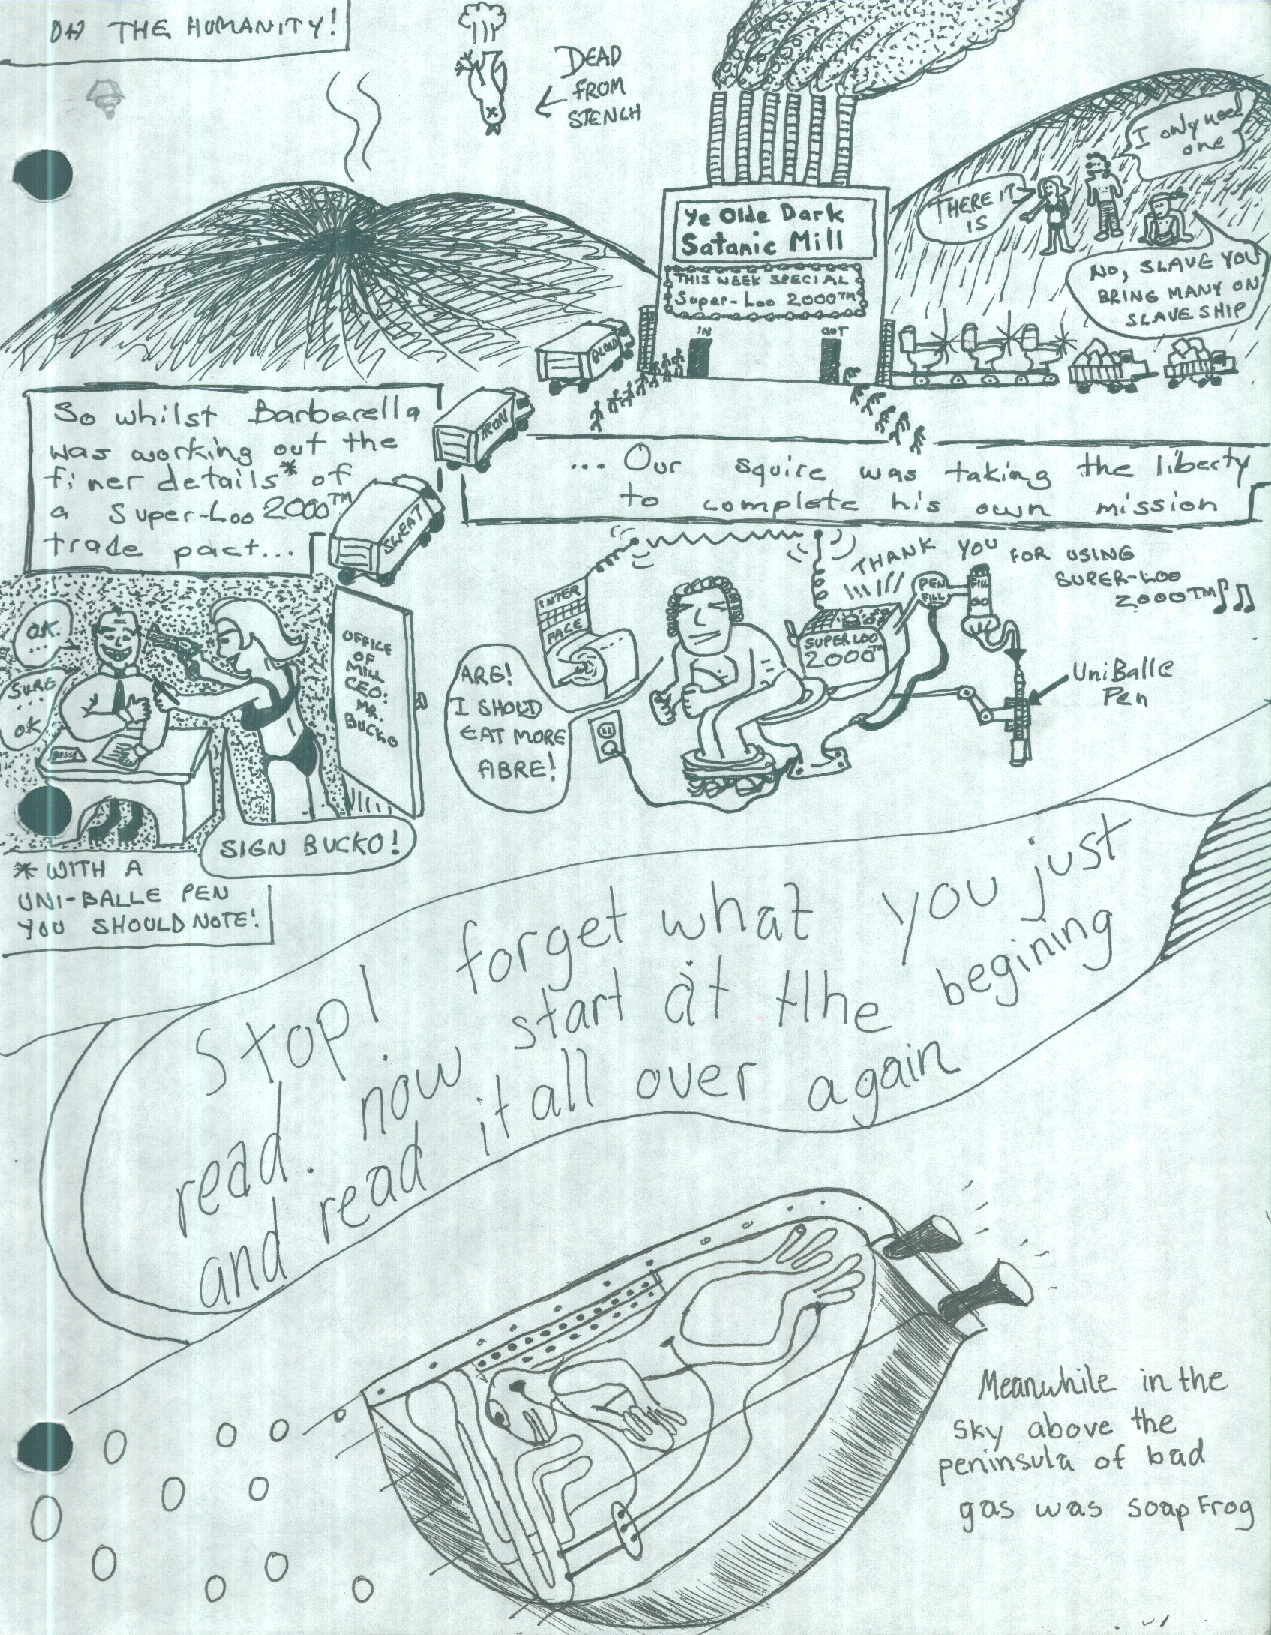 OH THE HUMANITY!
DEAD
FROM
STENCH
Ye Olde Dark
Satanic Mill
THIS WEEK SPECIAL
Super-Loo 2000™
IN
OUT
I only need
one
THERE IT
IS
NO, SLAVE YOU
BRING MANY ON
SLAVE SHIP
BLOOD
IRON
SWEAT
So whilst Barbarella
was working out the
finer details* of
a Super-Loo 2000™
trade pact...
... Our squire was taking the liberty
to complete his own mission
OK.
SURE
OK
OFFICE
OF
MILL
CEO:
MR.
BUCKO
SIGN BUCKO!
* WITH A
UNI-BALLE PEN
YOU SHOULD NOTE!
INTER
FACE
ARG!
I SHOULD
EAT MORE
FIBRE!
SUPER LOO
2000™
THANK YOU FOR USING
SUPER-LOO
2000™
PEN
FILL
UniBalle
Pen
Stop! forget what you just
read. now start at tHhe begining
and read it all over again
Meanwhile in the
sky above the
peninsula of bad
gas was soap Frog